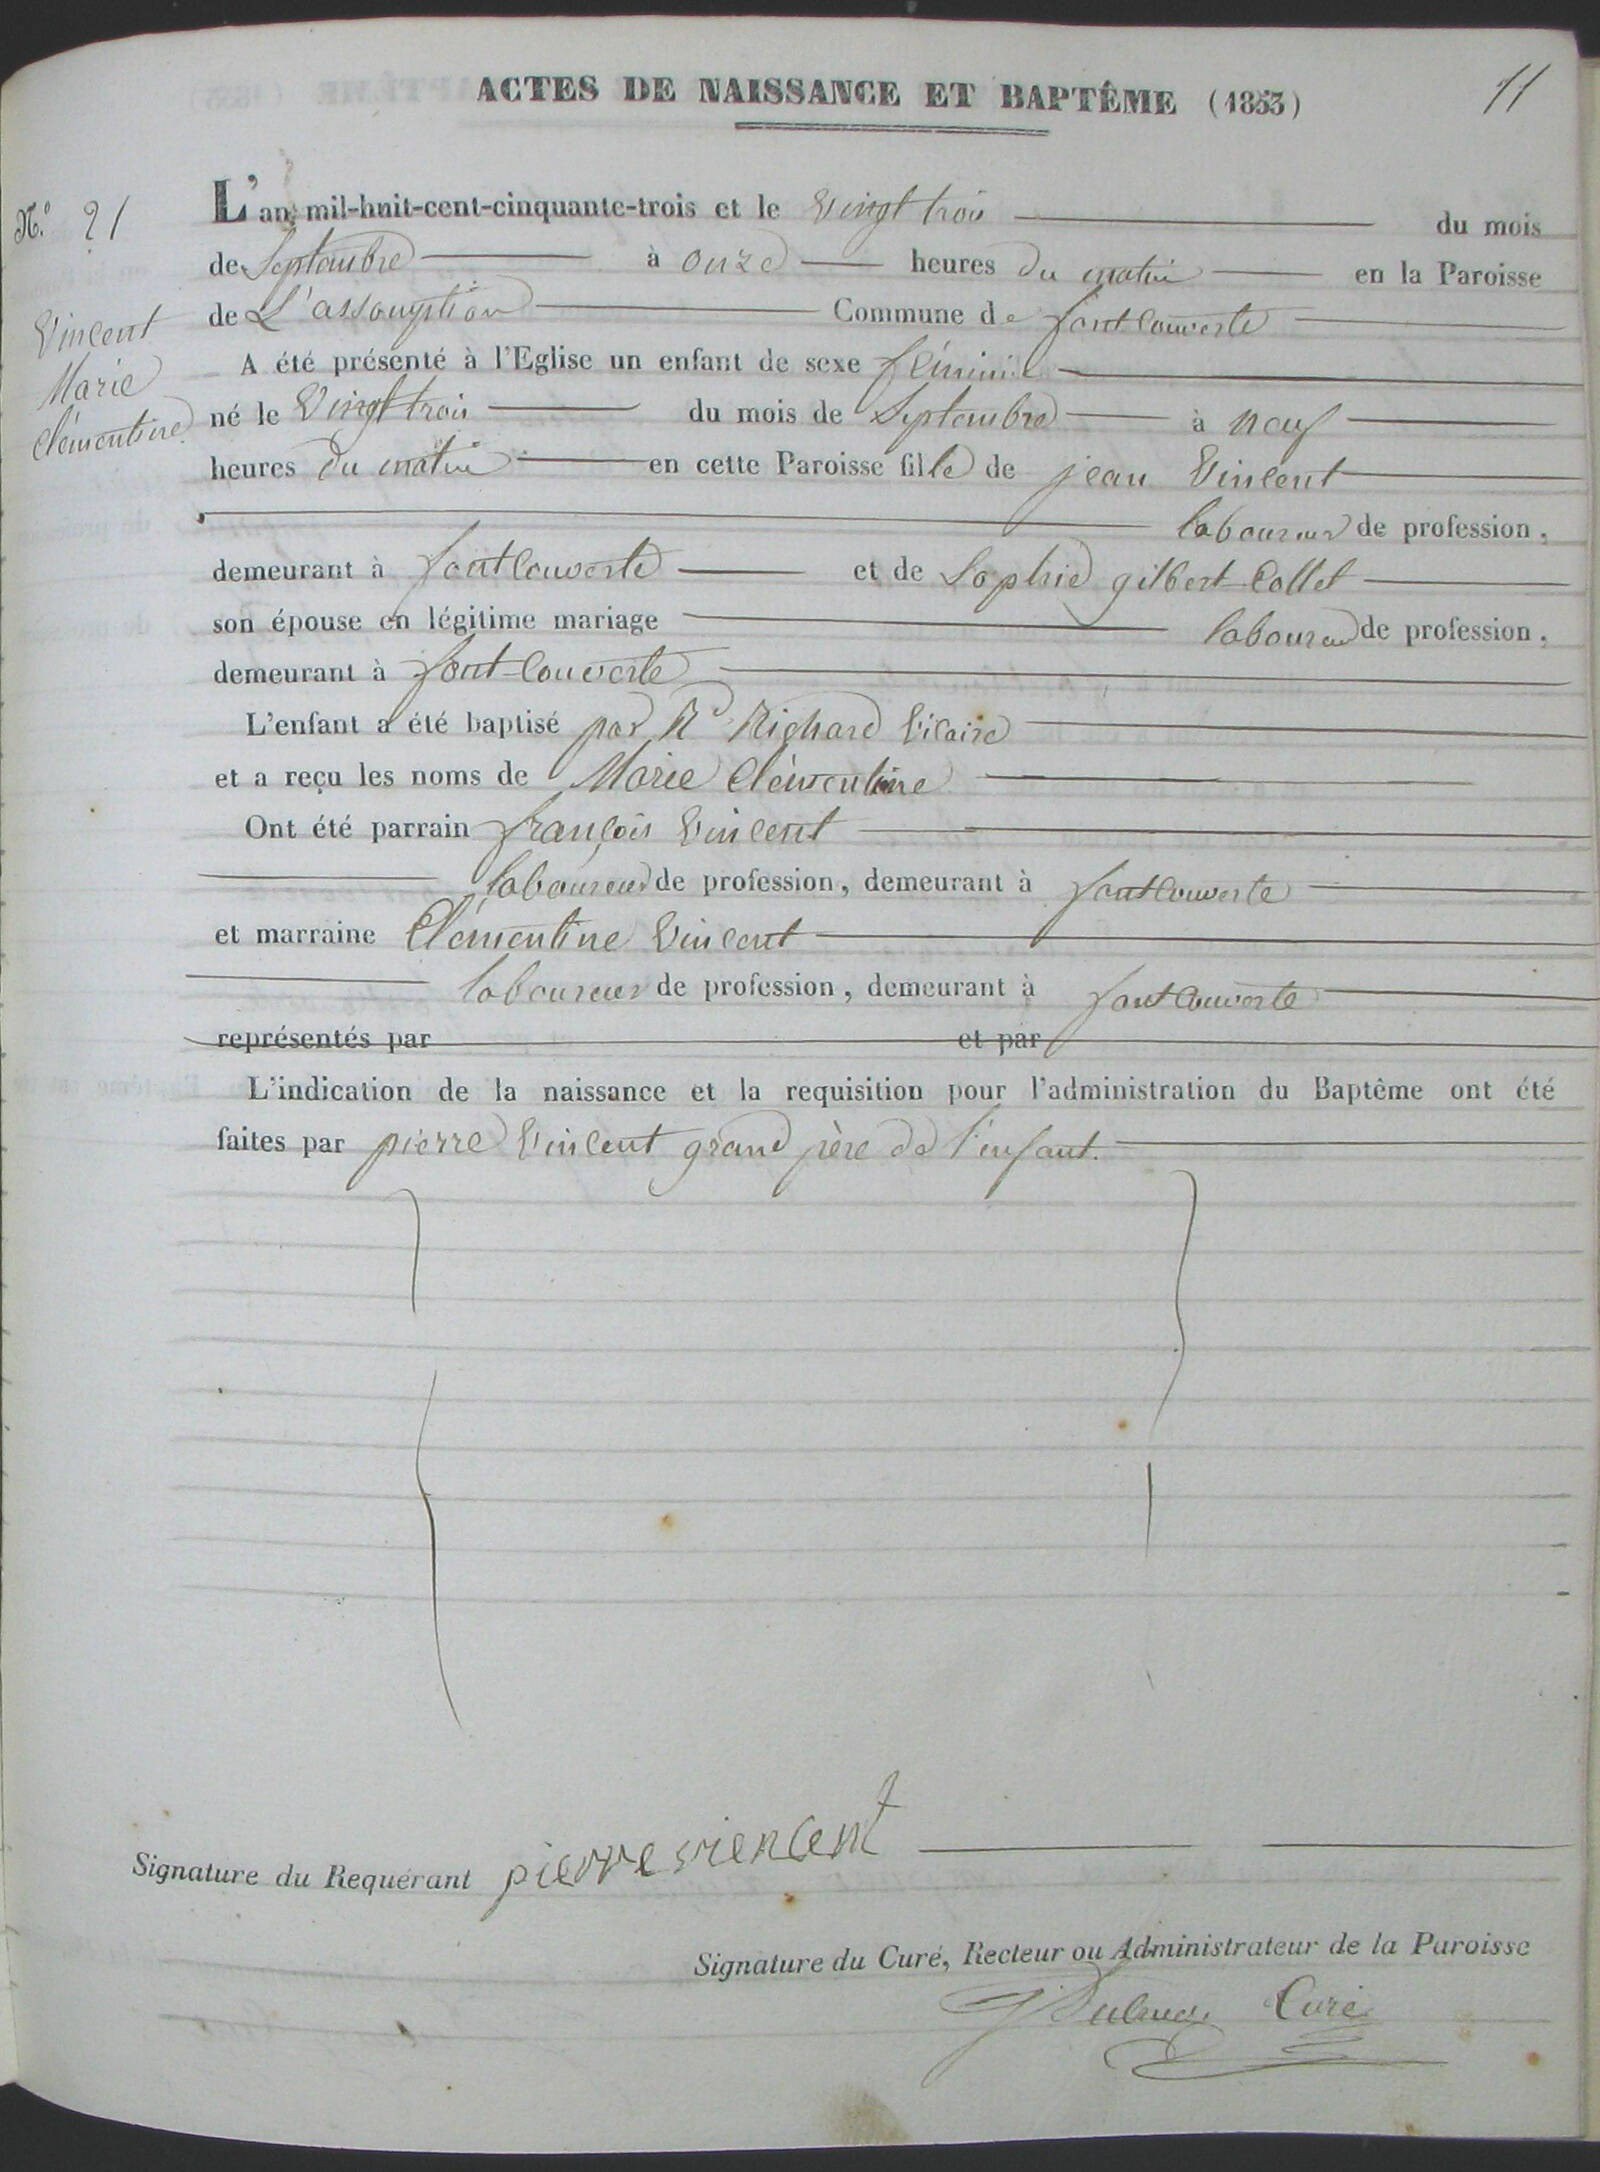 ACTES DE NAISSANCE ET BAPTÊME (1853)
11
N.º 21
Vincent
Marie
Clémentine
L'an mil-huit-cent-cinquante-trois et le Vingt trois du mois
de Septembre à onze heures du matin en la Paroisse
de L'assomption Commune de fontcouverte
A été présenté à l'Eglise un enfant de sexe féminin
né le Vingt trois du mois de Septembre à neuf
heures du matin en cette Paroisse fille de jean Vincent
laboureur de profession,
demeurant à fontcouverte et de Sophie gilbert-Collet
son épouse en légitime mariage laboureur de profession,
demeurant à font-couverte
L'enfant a été baptisé par Rd Richard Vicaire
et a reçu les noms de Marie Clémentine
Ont été parrain françois Vincent
laboureur de profession, demeurant à fontcouverte
et marraine Clémentine Vincent
laboureur de profession, demeurant à fontcouverte
représentés par et par
L'indication de la naissance et la requisition pour l'administration du Baptême ont été
faites par pierre Vincent grand père de l'enfant.
Signature du Requérant pierre viencent
Signature du Curé, Recteur ou Administrateur de la Paroisse
Curé